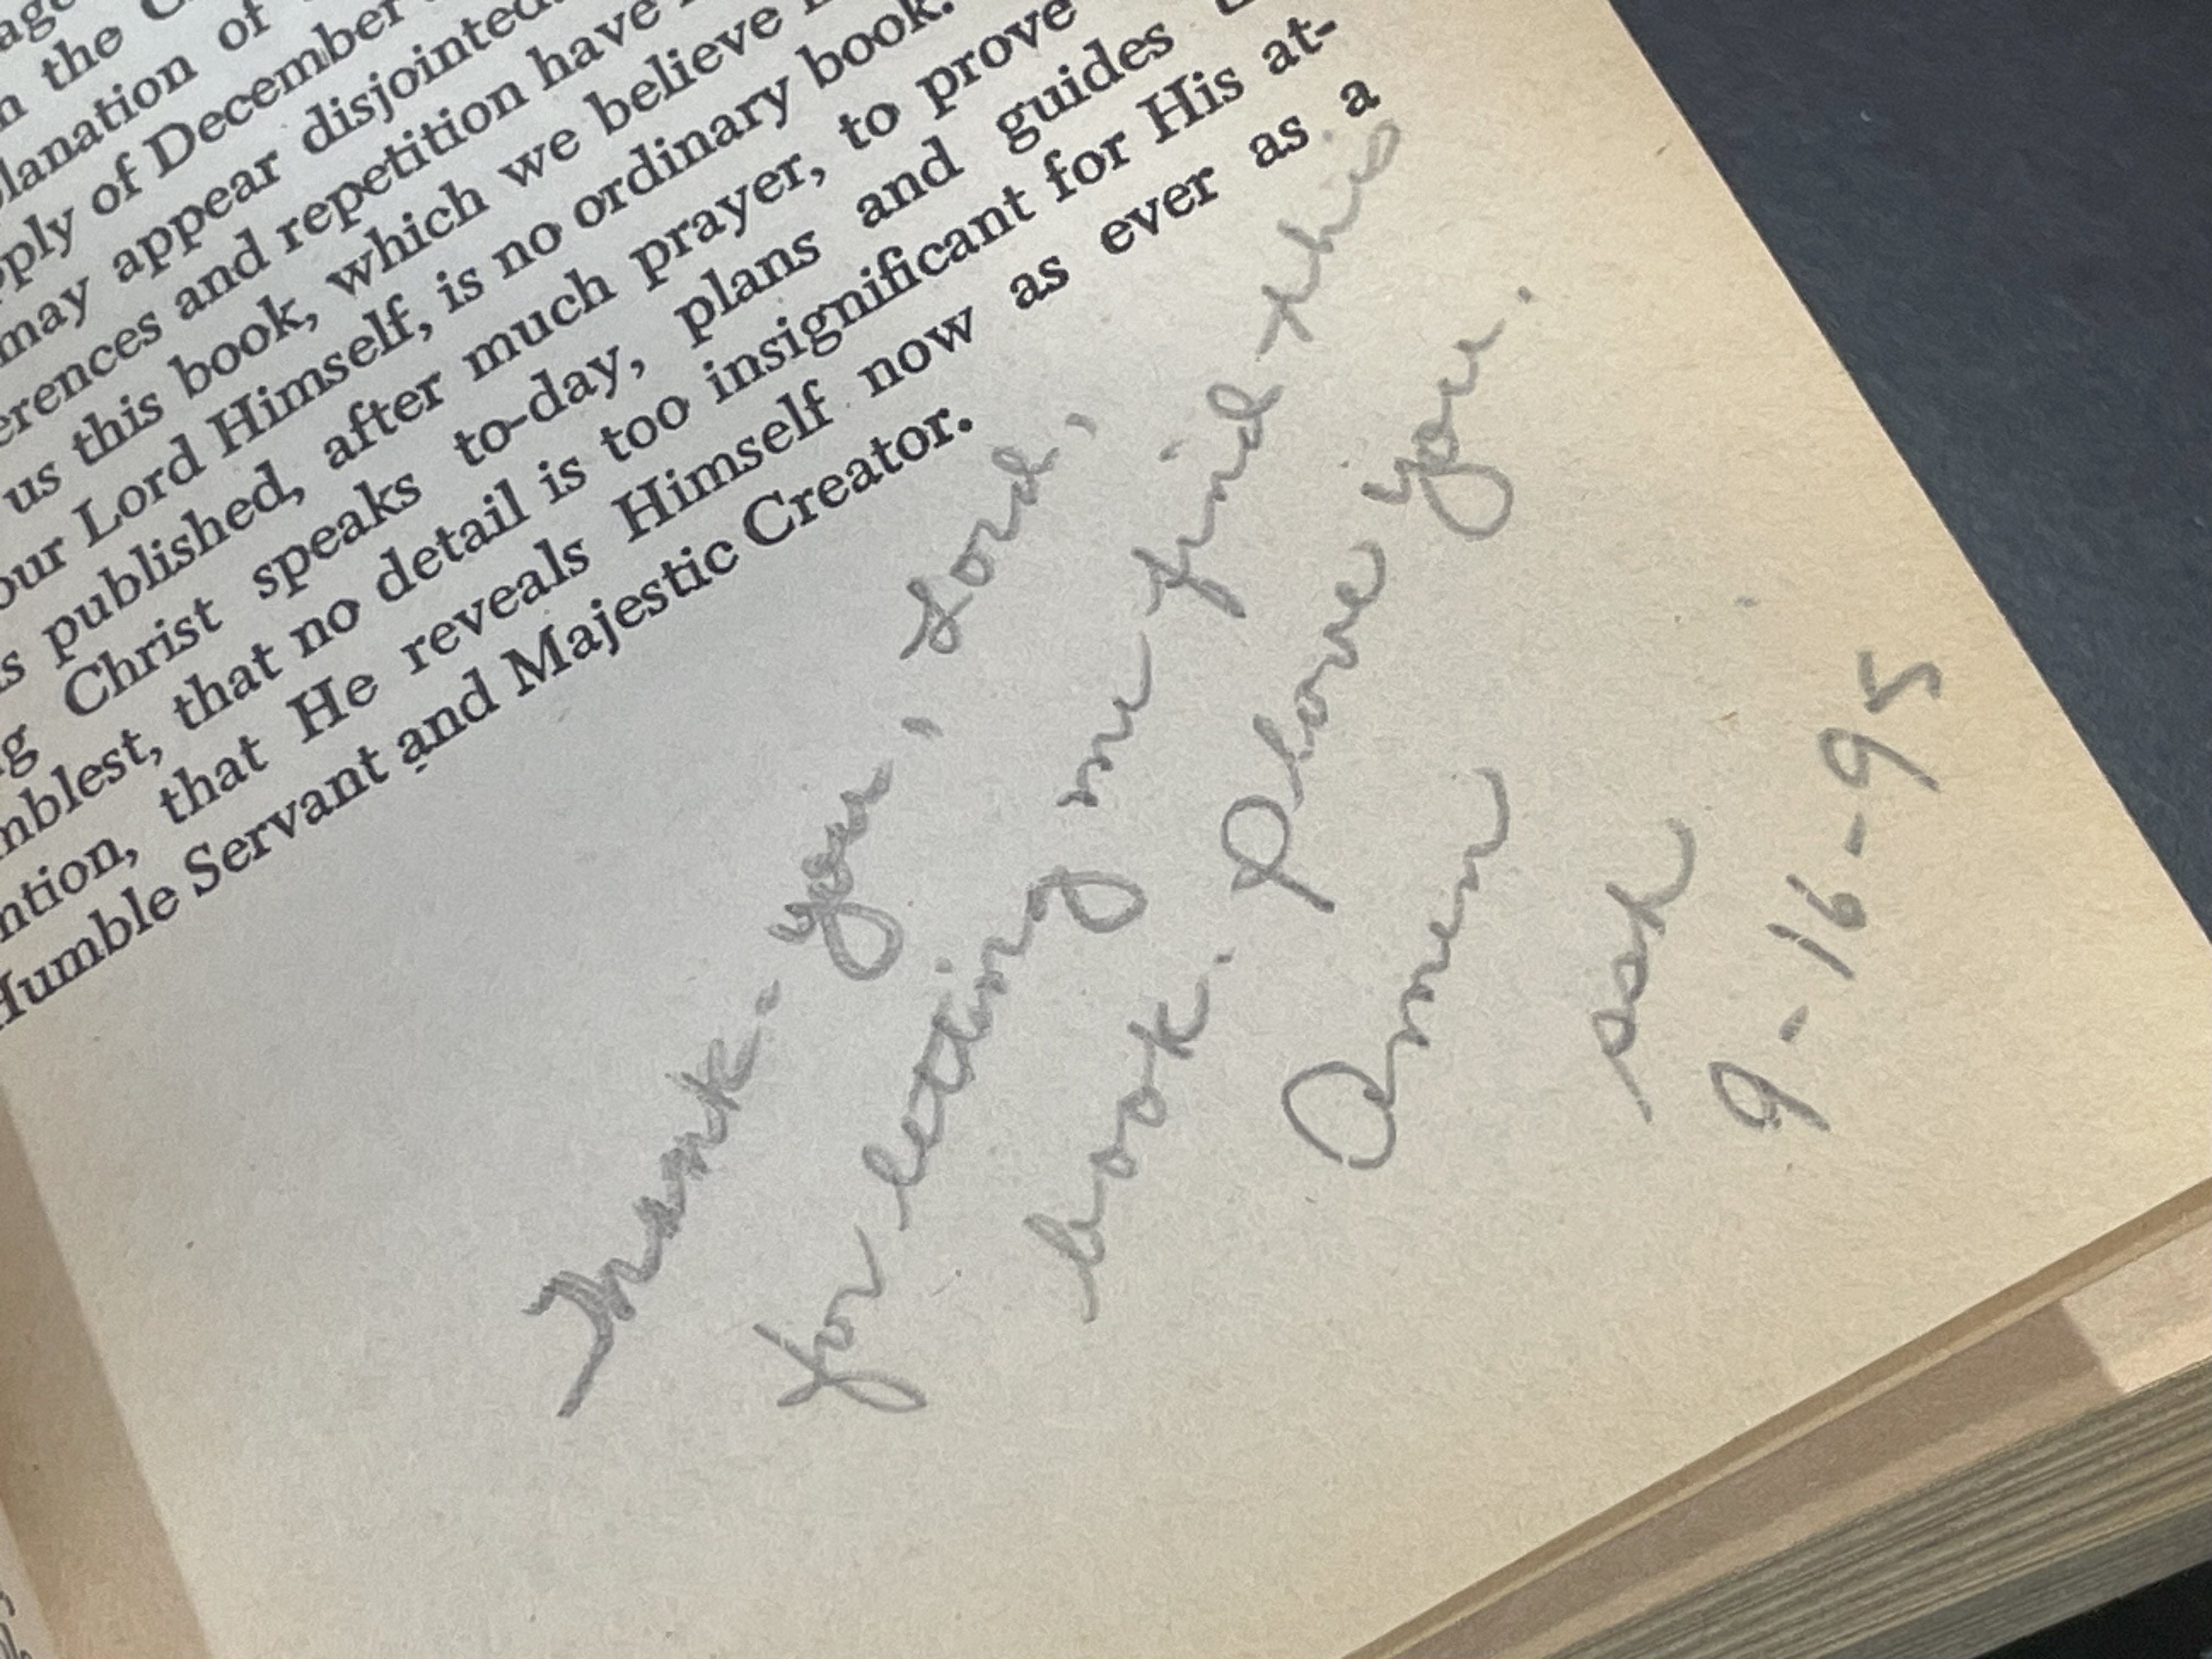 the
lanation of
pply of December
may appear disjointed.
erences and repetition have
us this book, which we believe
our Lord Himself, is no ordinary book.
s published, after much prayer, to prove
g Christ speaks to-day, plans and guides
mblest, that no detail is too insignificant for His at-
ntion, that He reveals Himself now as ever as a
Humble Servant and Majestic Creator.
Thank-you, Lord,
for letting me find this
book. I love you.
Amen
9-16-95